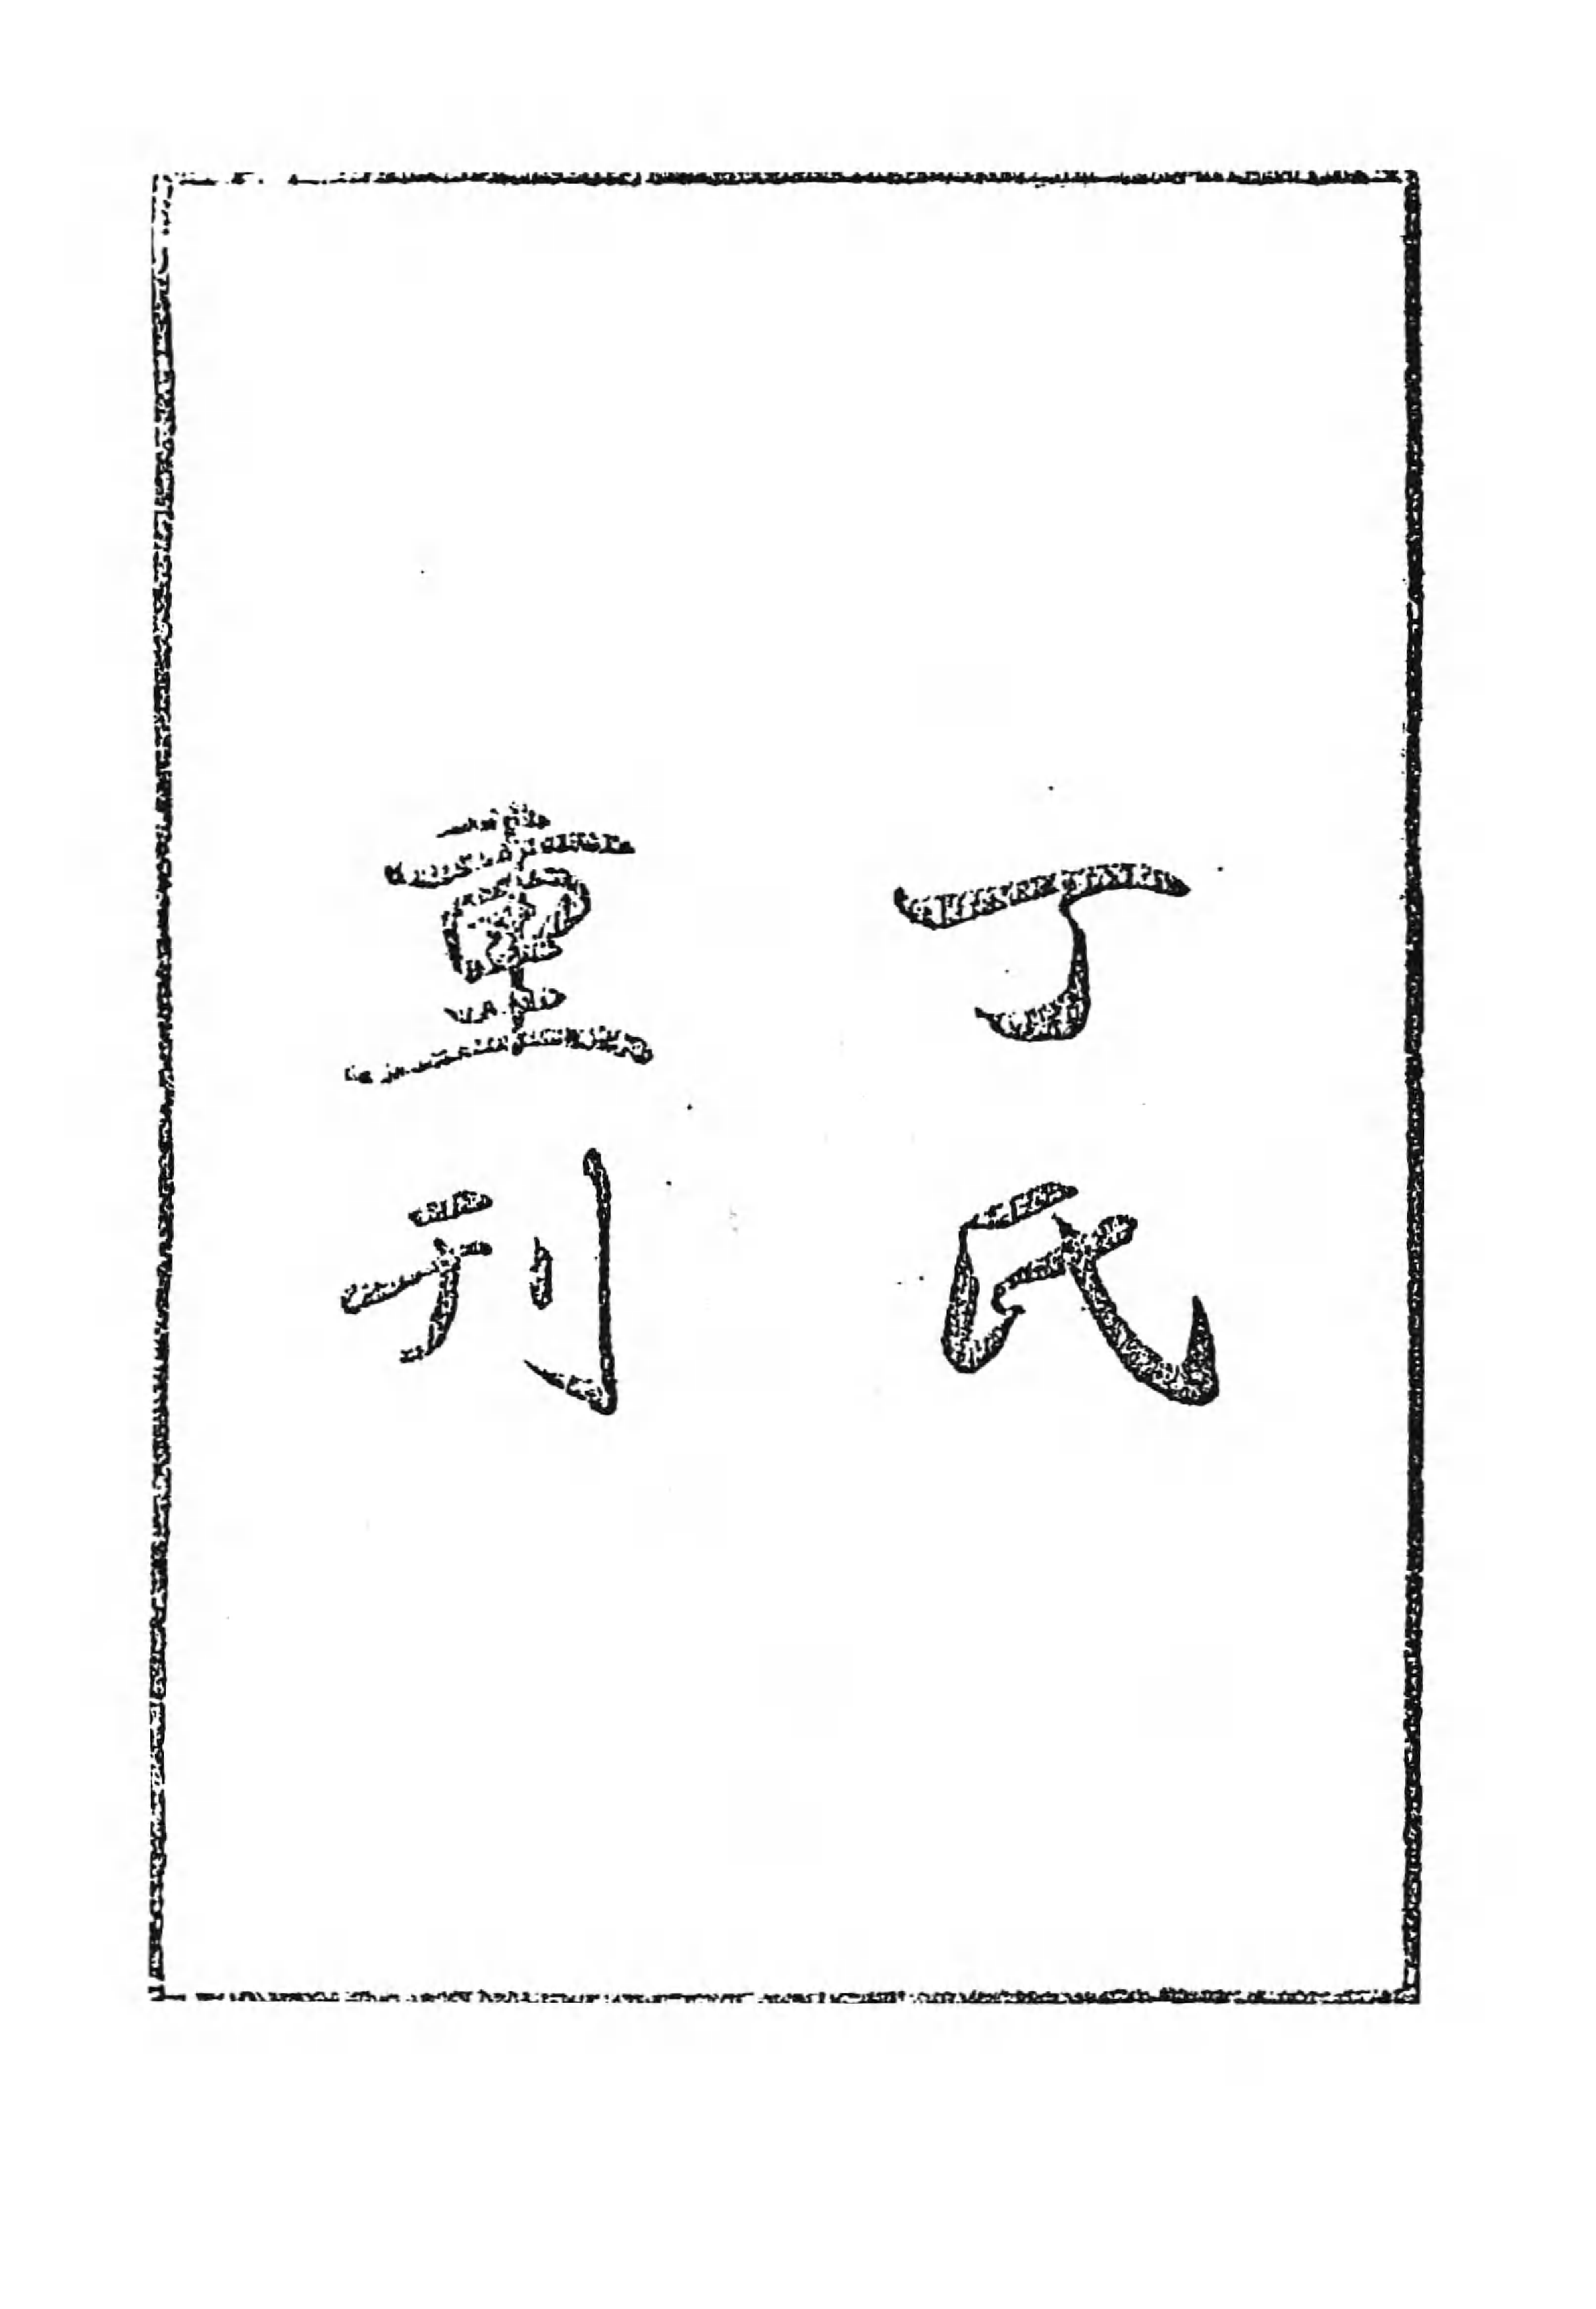 丁氏
重刊